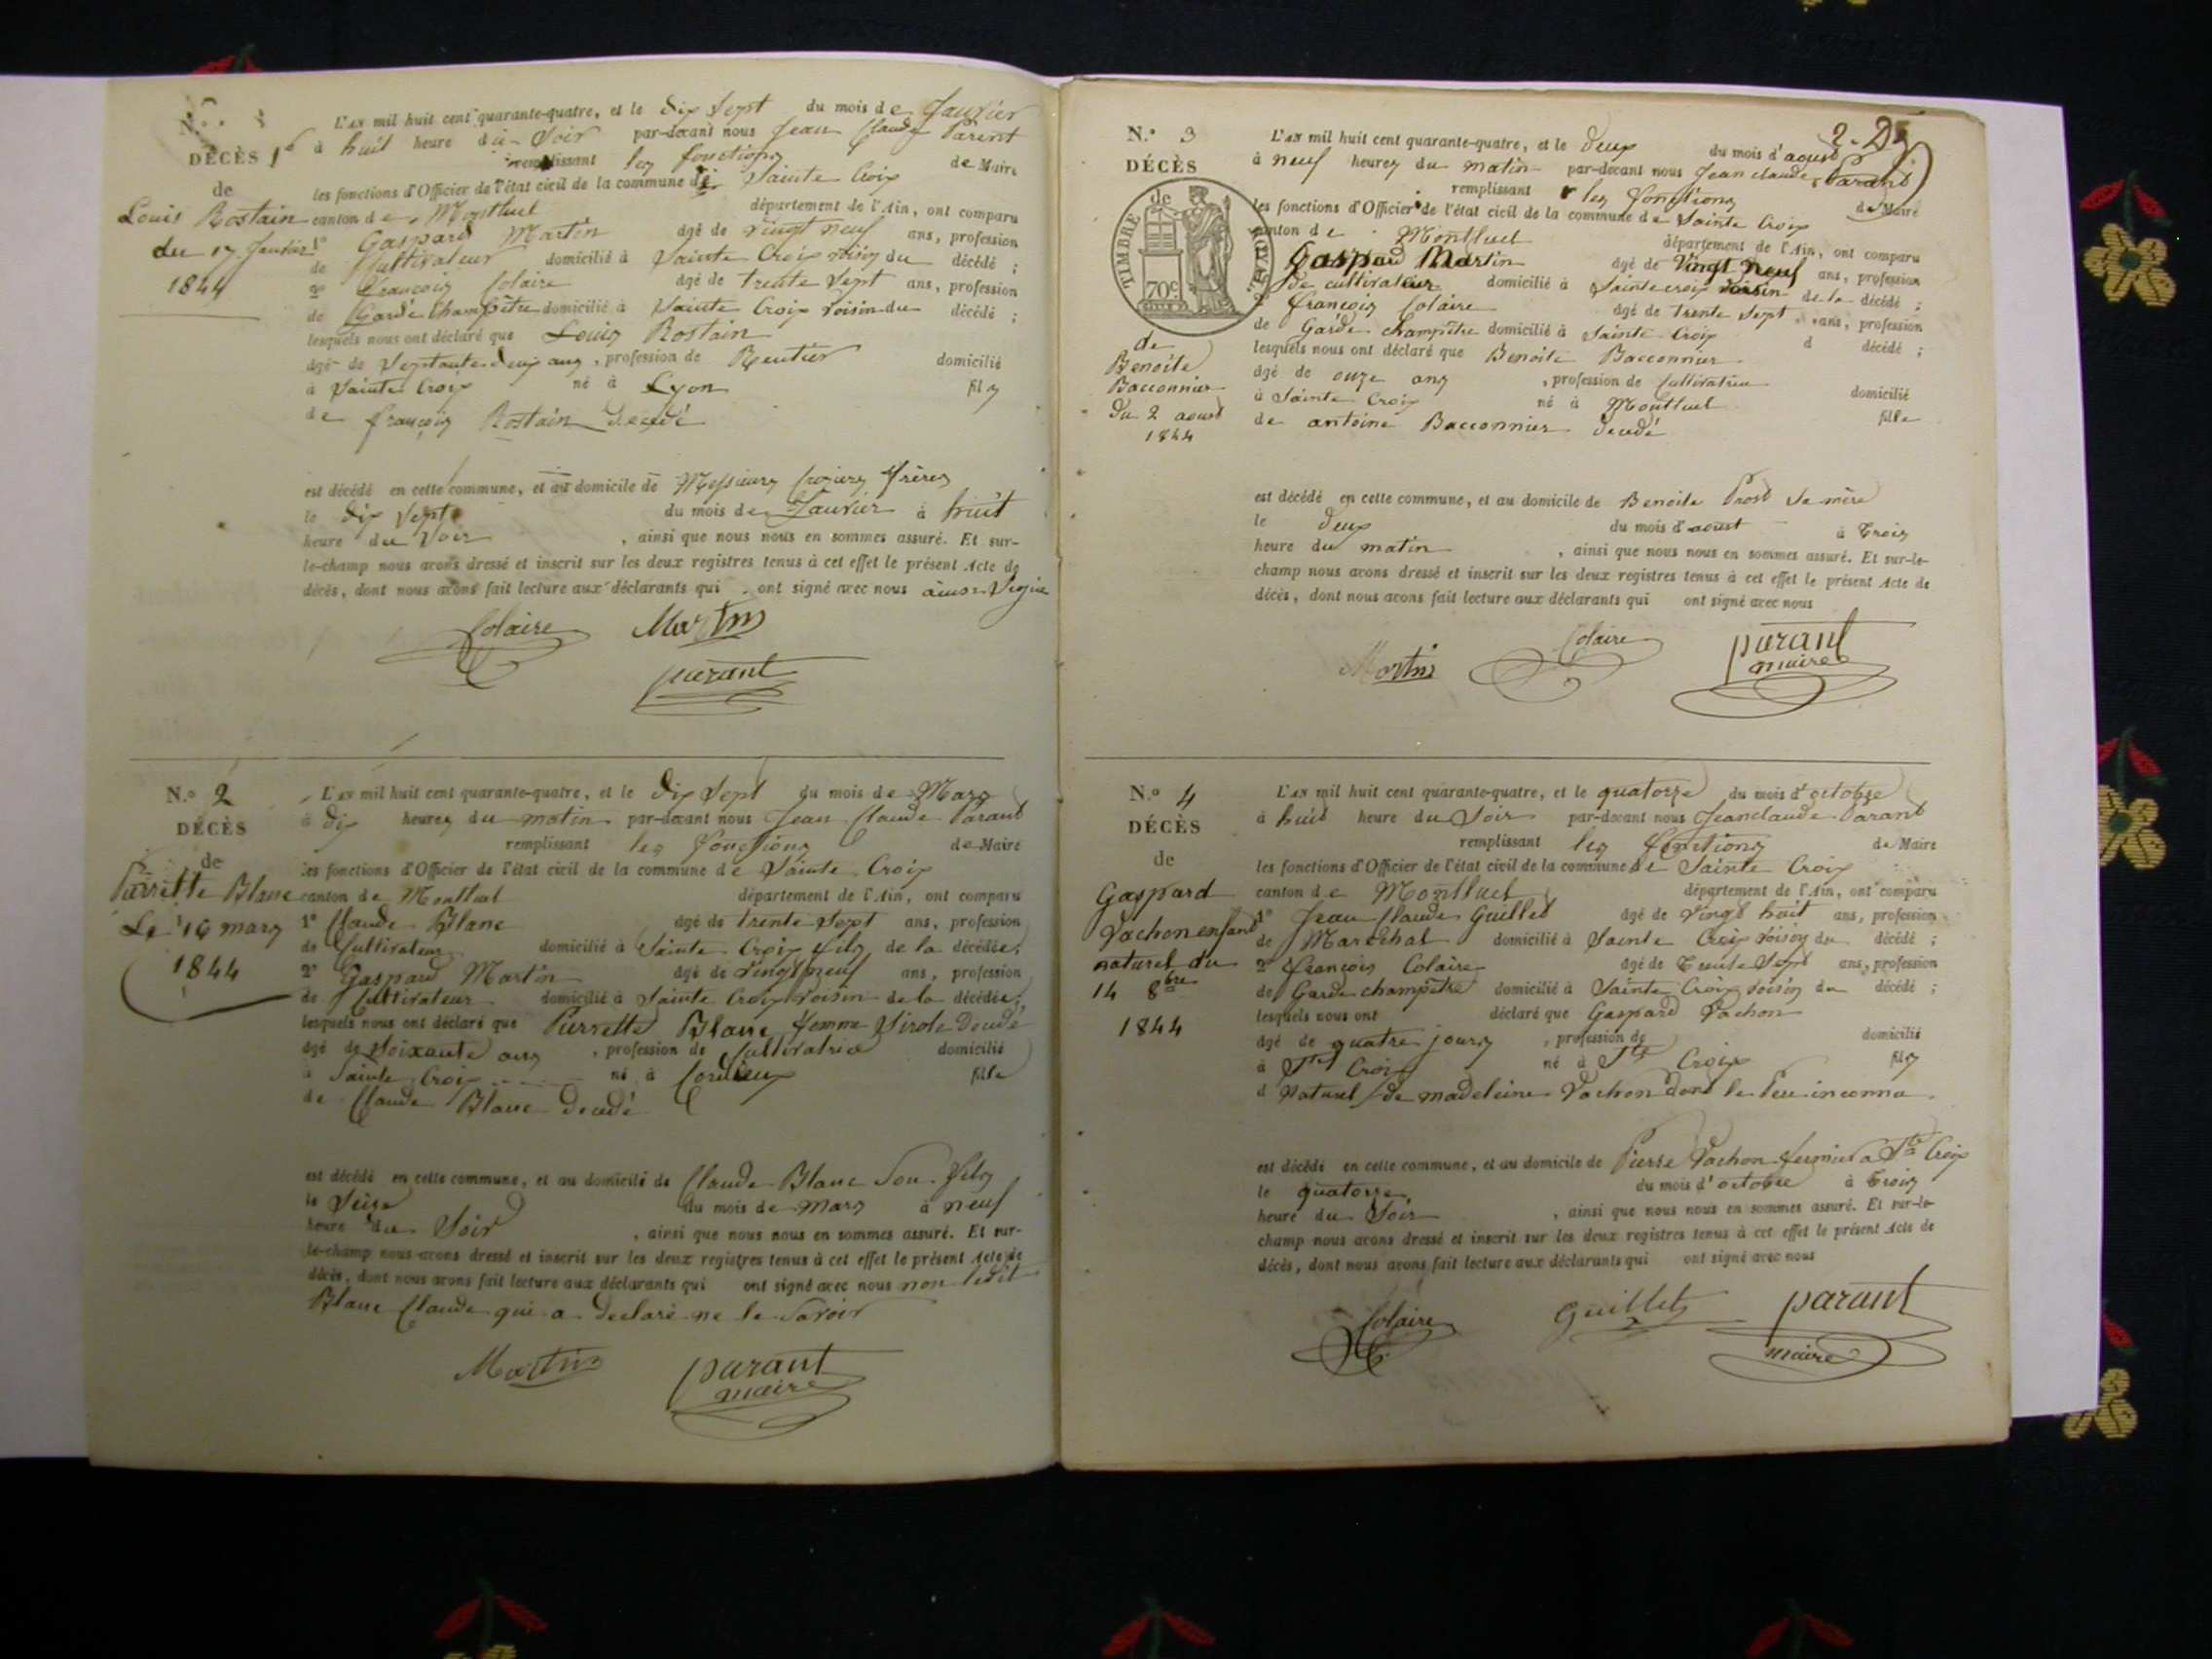 N.°
DÉCÈS 1er
de
Louis Rostain
du 17 Janvier
1844
L'AN mil huit cent quarante-quatre, et le dix Sept du mois de Janvier
à huit heure du Soir par-devant nous Jean Claude Parent
remplissant les fonctions de Maire
les fonctions d'Officier de l'état civil de la commune de Sainte Croix
canton de Montluel département de l'Ain, ont comparu
1° Gaspard Martin âgé de vingt neuf ans, profession
de Cultivateur domicilié à Sainte Croix voisin du décédé ;
2° François Colaire âgé de trente Sept ans, profession
de Garde Champêtre domicilié à Sainte Croix voisin du décédé ;
lesquels nous ont déclaré que Louis Rostain
âgé de Septante deux ans, profession de Rentier domicilié
à Sainte Croix né à Lyon fils
de françois Rostain décédé
est décédé en cette commune, et au domicile de Messieurs frères
le dix Sept du mois de Janvier à huit
heure du Soir, ainsi que nous nous en sommes assuré. Et sur-
le-champ nous avons dressé et inscrit sur les deux registres tenus à cet effet le présent Acte de
décès, dont nous avons fait lecture aux déclarants qui ont signé avec nous
Colaire Martin
parant
N.° 2
DÉCÈS
de
Pierrette Blanc
Le 16 mars
1844
L'AN mil huit cent quarante-quatre, et le dix Sept du mois de Mars
à dix heures du matin par-devant nous Jean Claude Parant
remplissant les fonctions de Maire
les fonctions d'Officier de l'état civil de la commune de Sainte Croix
canton de Montluel département de l'Ain, ont comparu
1° Claude Blanc âgé de trente Sept ans, profession
de Cultivateur domicilié à Sainte Croix fils de la décédée ;
2° Gaspard Martin âgé de vingt neuf ans, profession
de Cultivateur domicilié à Sainte Croix voisin de la décédée ;
lesquels nous ont déclaré que Pierrette Blanc femme Sirole
âgé de Soixante ans, profession de Cultivatrice domicilié
à Sainte Croix né à Cordieux fille
de Claude Blanc décédé
est décédé en cette commune, et au domicile de Claude Blanc Son fils
le Seize du mois de mars à neuf
heure du Soir, ainsi que nous nous en sommes assuré. Et sur-
le-champ nous avons dressé et inscrit sur les deux registres tenus à cet effet le présent Acte de
décès, dont nous avons fait lecture aux déclarants qui ont signé avec nous non ledit
Blanc Claude qui a declaré ne le Savoir
Martin parant
maire
2. D
N.° 3
DÉCÈS
de
TIMBRE ROYAL
70c
de
Benoite
Bacconnier
Du 2 aoust
1844
L'AN mil huit cent quarante-quatre, et le deux du mois d'aoust
à neuf heures du matin par-devant nous Jean claude Parant
remplissant les fonctions de Maire
les fonctions d'Officier de l'état civil de la commune de Sainte Croix
canton de Montluel département de l'Ain, ont comparu
Gaspard Martin âgé de Vingt neuf ans, profession
de cultivateur domicilié à Sainte croix voisin de la décédé ;
françois Colaire âgé de trente Sept ans, profession
de Garde champêtre domicilié à Sainte Croix d décédé ;
lesquels nous ont déclaré que Benoite Bacconnier
âgé de onze ans, profession de Cultivatrice domicilié
à Sainte Croix né à Montluel fille
de antoine Bacconnier décédé
est décédé en cette commune, et au domicile de Benoite Prost Sa mère
le deux du mois d'aoust à trois
heure du matin, ainsi que nous nous en sommes assuré. Et sur-le-
champ nous avons dressé et inscrit sur les deux registres tenus à cet effet le présent Acte de
décès, dont nous avons fait lecture aux déclarants qui ont signé avec nous
Martin Colaire parant
maire
N.° 4
DÉCÈS
de
Gaspard
Vachon enfant
naturel du
14 8bre
1844
L'AN mil huit cent quarante-quatre, et le quatorze du mois d'octobre
à huit heure du Soir par-devant nous Jean claude Parant
remplissant les fonctions de Maire
les fonctions d'Officier de l'état civil de la commune de Sainte Croix
canton de Montluel département de l'Ain, ont comparu
1° Jean Claude Guillet âgé de vingt huit ans, profession
de Maréchal domicilié à Sainte Croix voisin du décédé ;
2° françois Colaire âgé de trente Sept ans, profession
de Garde champêtre domicilié à Sainte Croix voisin du décédé ;
lesquels nous ont déclaré que Gaspard Vachon
âgé de quatre jours, profession de domicilié
à Ste Croix né à Ste Croix fils
d Naturel de madeleine Vachon dont le Père inconnu
est décédé en cette commune, et au domicile de Pierre Vachon fermier a Ste Croix
le quatorze du mois d'octobre à trois
heure du Soir, ainsi que nous nous en sommes assuré. Et sur-le-
champ nous avons dressé et inscrit sur les deux registres tenus à cet effet le présent Acte de
décès, dont nous avons fait lecture aux déclarants qui ont signé avec nous
Colaire Guillet parant
maire